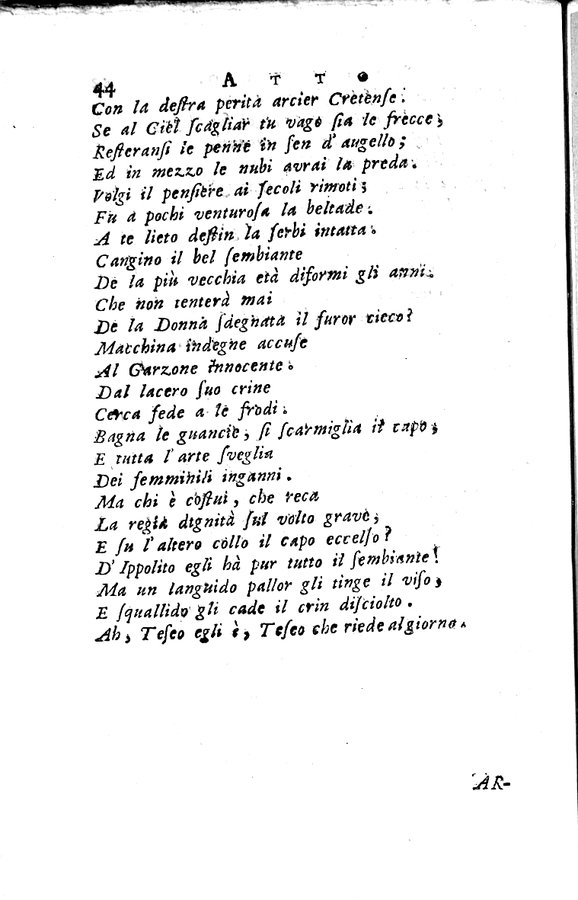 44 A T T O
Con la deſtra perità arcier Cretenſe.
Se al Ciel ſcagliar tu vago ſia le frecce;
Reſteranſi le penne in ſen d'augello;
Ed in mezzo le nubi avrai la preda.
Volgi il penſiere ai ſecoli rimoti;
Fu a pochi venturoſa la beltade.
A te lieto deſtin la ſerbi intatta.
Cangino il bel ſembiante
De la più vecchia età diformi gli anni.
Che non tenterà mai
De la Donna ſdegnata il furor cieco?
Macchina indegne accuſe
Al Garzone innocente.
Dal lacero ſuo crine
Cerca fede a le frodi.
Bagna le guancie, ſi ſcarmiglia il capo,
E tutta l'arte ſveglia
Dei femminili inganni.
Ma chi è coſtui, che reca
La regia dignità ſul volto grave;
E ſu l'altero collo il capo eccelſo?
D'Ippolito egli hà pur tutto il ſembiante!
Ma un languido pallor gli tinge il viſo,
E ſquallido gli cade il crin diſciolto.
Ah, Teſeo egli è, Teſeo che riede al giorno.
AR-